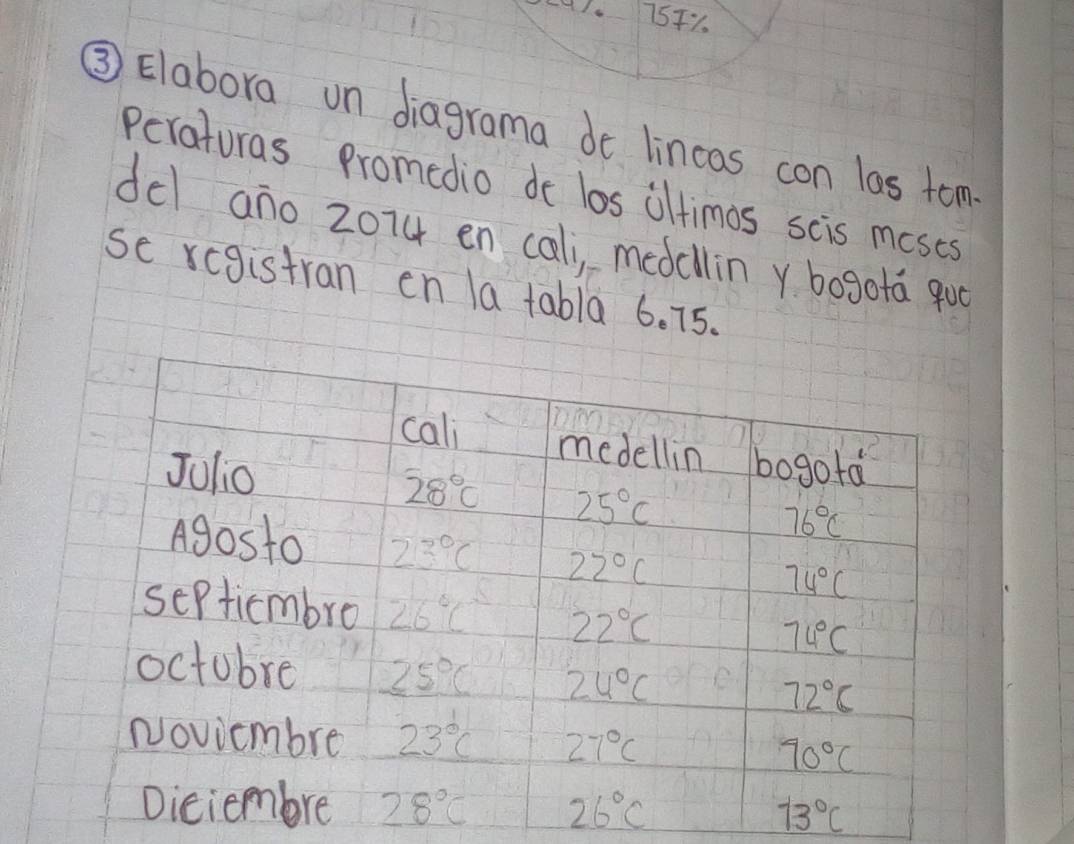 ③ Elabora un diagrama de lineas con las tem-
peraturas promedio de los últimos seis meses
del año 2014 en cali, medellin y bogotá que
se registran en la tabla 6.15.
cali medellin bogotá
Julio 28°C 25°C 16°C
Agosto 23°C 22°C 14°C
septiembre 26°C 22°C 14°C
octubre 25°C 24°C 12°C
Noviembre 23°C 21°C 10°C
Diciembre 28°C 26°C 13°C